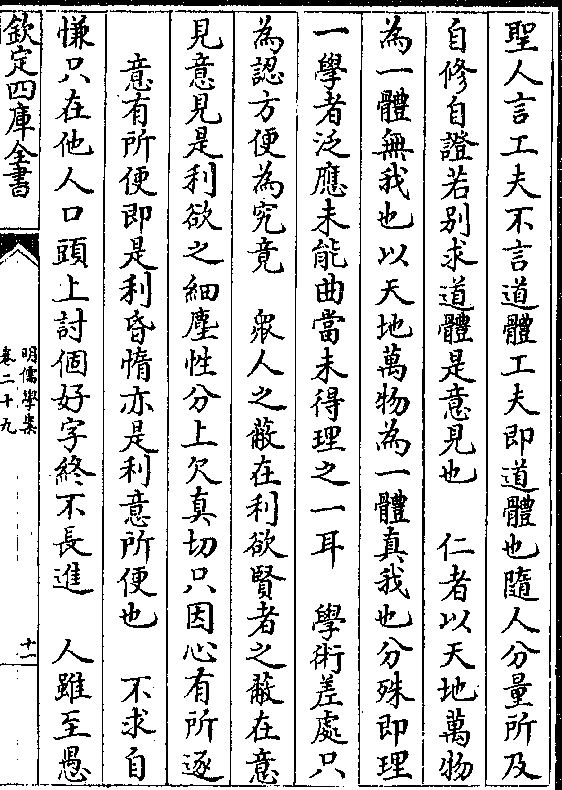 聖人言工夫不言道體工夫即道體也隨人分量所及
自修自證若别求道體是意見也　仁者以天地萬物
為一體無我也以天地萬物為一體真我也分殊即理
一學者泛應未能曲當未得理之一耳　學術差處只
為認方便為究竟　衆人之蔽在利欲賢者之蔽在意
見意見是利欲之細塵性分上欠真切只因心有所逐
意有所便即是利昏惰亦是利意所便也　不求自
慊只在他人口頭上討個好字終不長進　人雖至愚
欽定四庫全書
明儒學案
卷二十九
十一